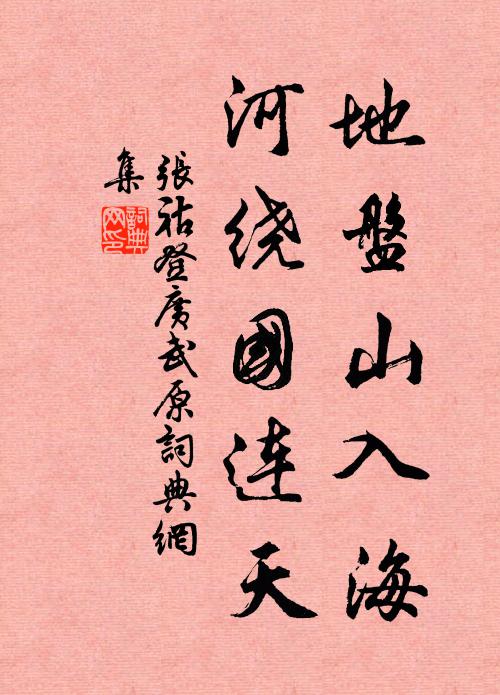 地盤山入海
河绕國连天
張祜登廣武原詞典網
集
詞典
网印